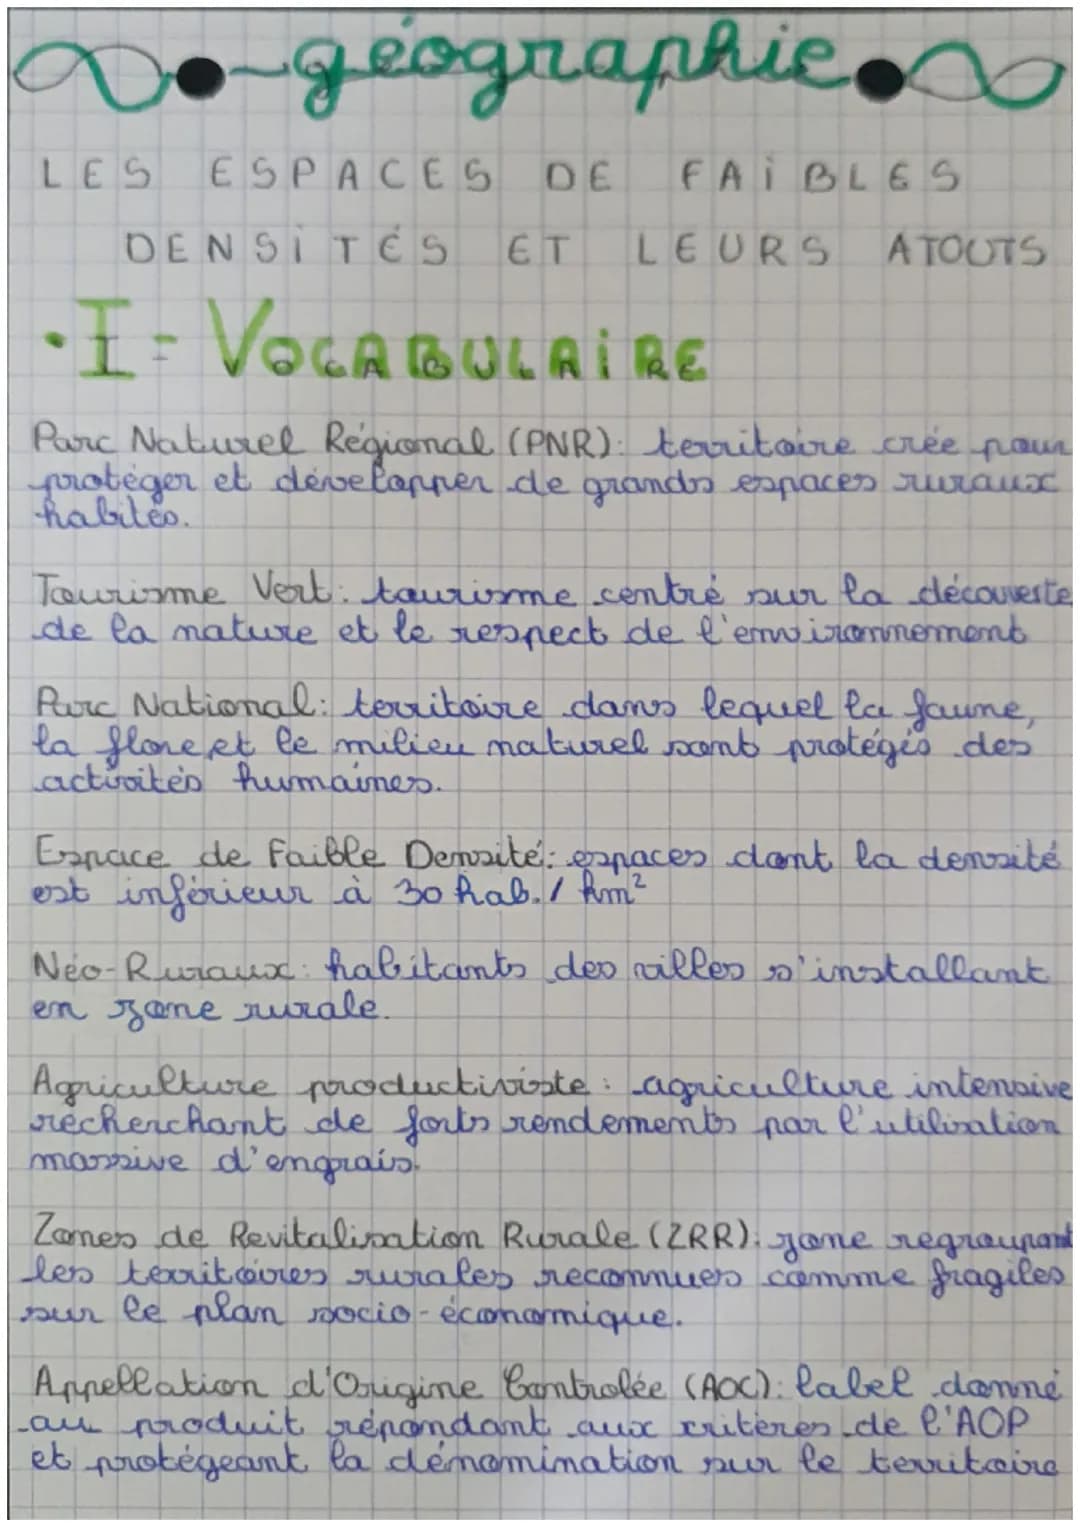 géographie
LES ESPACES DE FAIBLES
DENSITÉS ET LEURS ATOUTS
• I - VOCABULAIRE
Parc Naturel Régional (PNR): territoire crée pour
protéger et développer de grands espaces ruraux
habités.
Tourisme Vert: tourisme centré sur la découverte
de la nature et le respect de l'environnement
Parc National: territoire dans lequel la faune,
la flore et le milieu naturel sont protégés des
activités humaines.
Espace de Faible Densité: espaces dont la densité
est inférieur à 30 hab. / km²
Néo-Ruraux: habitants des villes s'installant
en zone rurale.
Agriculture productiviste: agriculture intensive
recherchant de forts rendements par l'utilisation
massive d'engrais.
Zones de Revitalisation Rurale (ZRR): zone regroupant
les territoires rurales reconnues comme fragiles
sur le plan socio-économique.
Appellation d'Origine Contrôlée (AOC): label donné
au produit répondant aux critères de l'AOP
et protégeant la dénomination sur le territoire